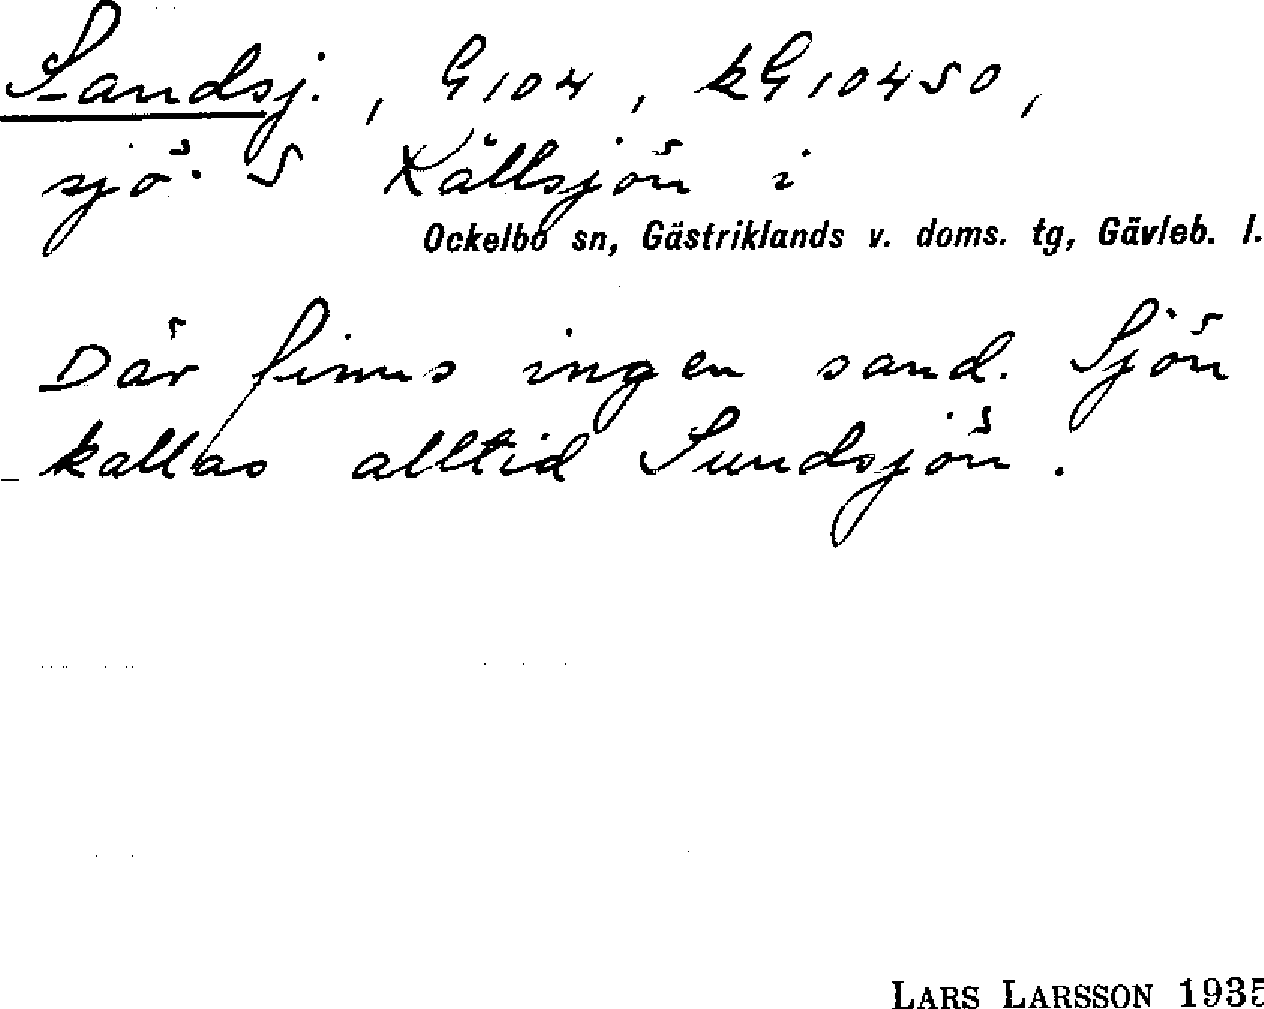 Sandsj. , G104 , kG10450 ,
sjö S Källsjön i
Ockelbo sn, Gästriklands v. doms. tg, Gävleb. l.
Där finns ingen sand. Sjön
kallas alltid Sundsjön .
LARS LARSSON 1935